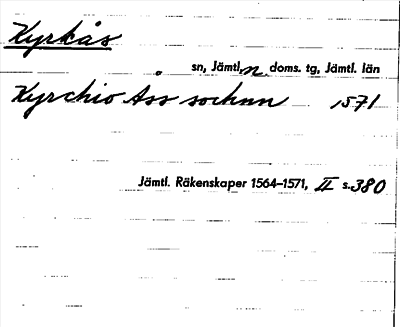 Kyrkås
sn, Jämtl. n. doms. tg, Jämtl. län
Kyrchio Åss sochnn 1571
Jämtl. Räkenskaper 1564–1571, II s. 380